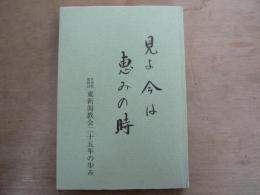 見よ今は
恵みの時
東新潟教会二十五年の歩み